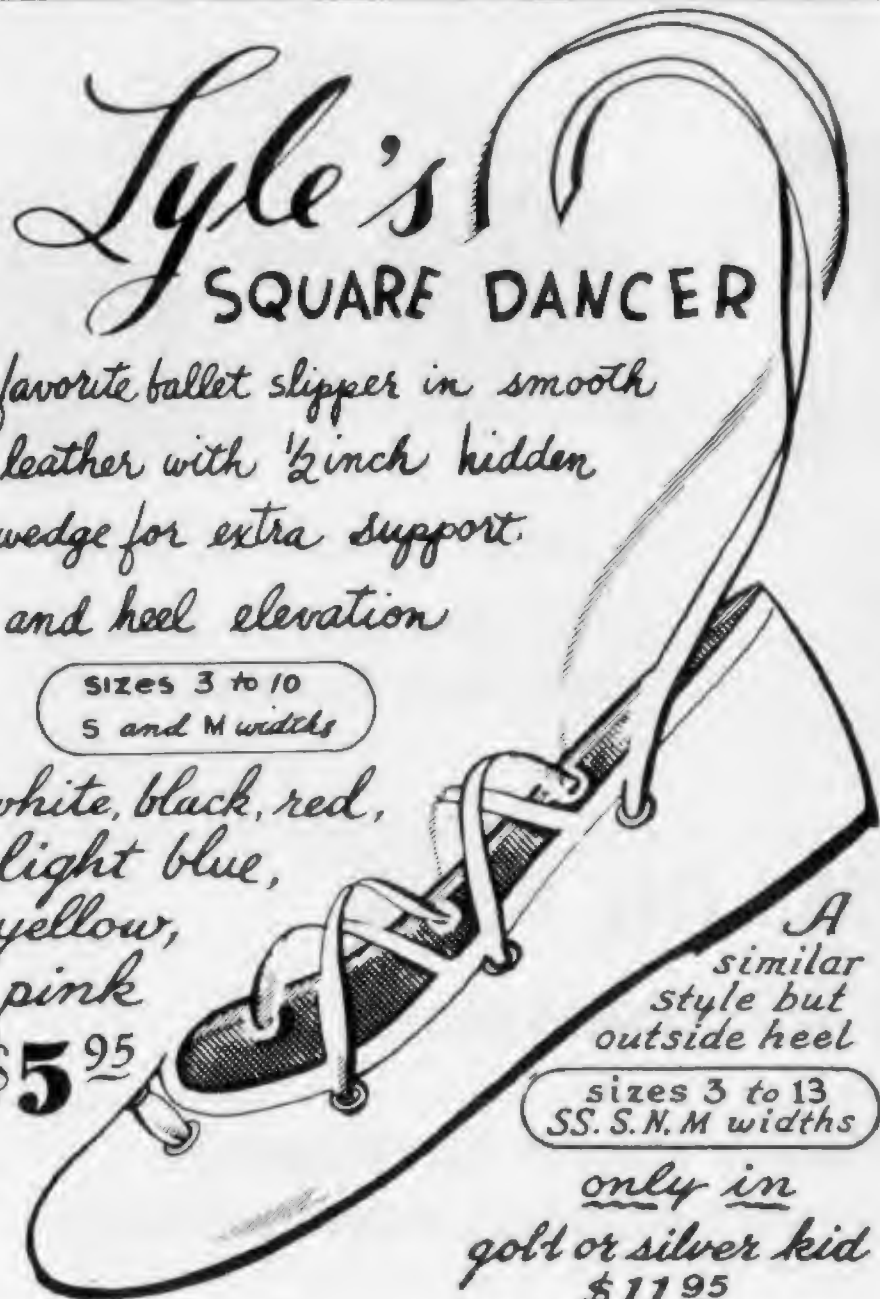 Lyle's
SQUARE DANCER
favorite ballet slipper in smooth
leather with ½ inch hidden
wedge for extra support.
and heel elevation
sizes 3 to 10
S and M widths
white, black, red,
light blue,
yellow,
pink
$5 95
A
similar
style but
outside heel
sizes 3 to 13
SS. S. N. M widths
only in
gold or silver kid
$11 95